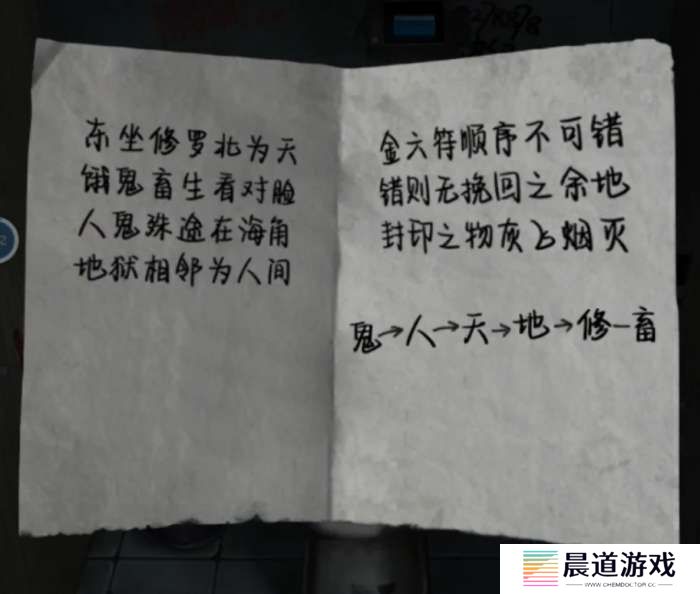 东坐修罗北为天
饿鬼畜生看对脸
人鬼殊途在海角
地狱相邻为人间
金六符顺序不可错
错则无挽回之余地
封印之物灰飞烟灭
鬼→人→天→地→修一畜
晨道游戏
WWW.CHEMDOCTOR.COM